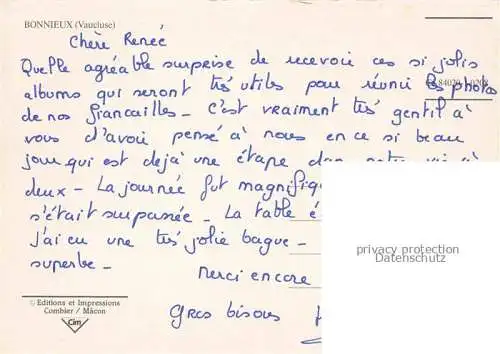 BONNIEUX (Vaucluse)
Chère Renée
Quelle agréable surprise de recevoir ces si jolis
albums qui seront très utiles pour réunir les photos
de nos fiancailles - C'est vraiment très gentil à
vous d'avoir pensé à nous en ce si beau
jour qui est dejà une étape dans notre vie à
deux - La journée fut magnifiq
s'était surpassée - La table é
j'ai eu une très jolie bague -
superbe -
Merci encore
Gros bisous
privacy protection
Datenschutz
© Editions et Impressions
Combier / Mâcon
Cim